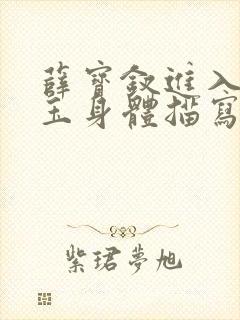 薛寶釵進入
玉身體描寫
紫珺夢旭